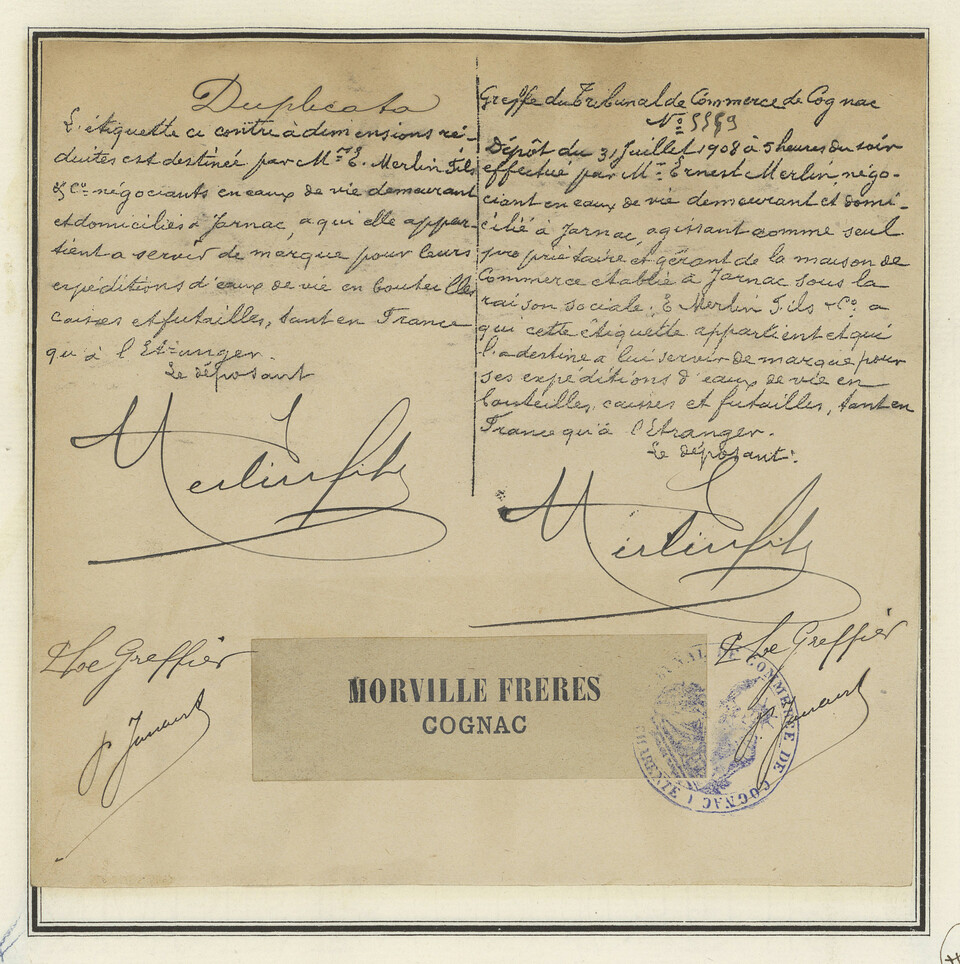 Duplicata
L'étiquette ci contre à dimensions ré-
duites est destinée par Mrs E. Merlin Fils
& Co négociants en eaux de vie demeurant
et domiciliés à Jarnac, a qui elle appar-
tient a servir de marque pour leurs
expéditions d'eaux de vie en bouteilles
caisses et futailles, tant en France
qu'à l'Etranger.
Le déposant
Merlin fils
Greffe du Tribunal de Commerce de Cognac
No 5559
Dépôt du 31 Juillet 1908 à 5 heures du soir
effectué par Mr Ernest Merlin, négo-
ciant en eaux de vie demeurant et domi-
cilié à Jarnac, agissant comme seul
propriétaire et gérant de la maison de
Commerce etablie à Jarnac sous la
raison sociale: E Merlin Fils & Co. a
qui cette étiquette appartient et qui
l'a destine a lui servir de marque pour
ses expéditions d'eaux de vie en
bouteilles, caisses et futailles, tant en
France qu'à l'Etranger.
Le déposant:
Merlin fils
Greffier
MORVILLE FRERES
COGNAC
Greffier
TRIBUNAL DE COMMERCE DE COGNAC (CHARENTE)